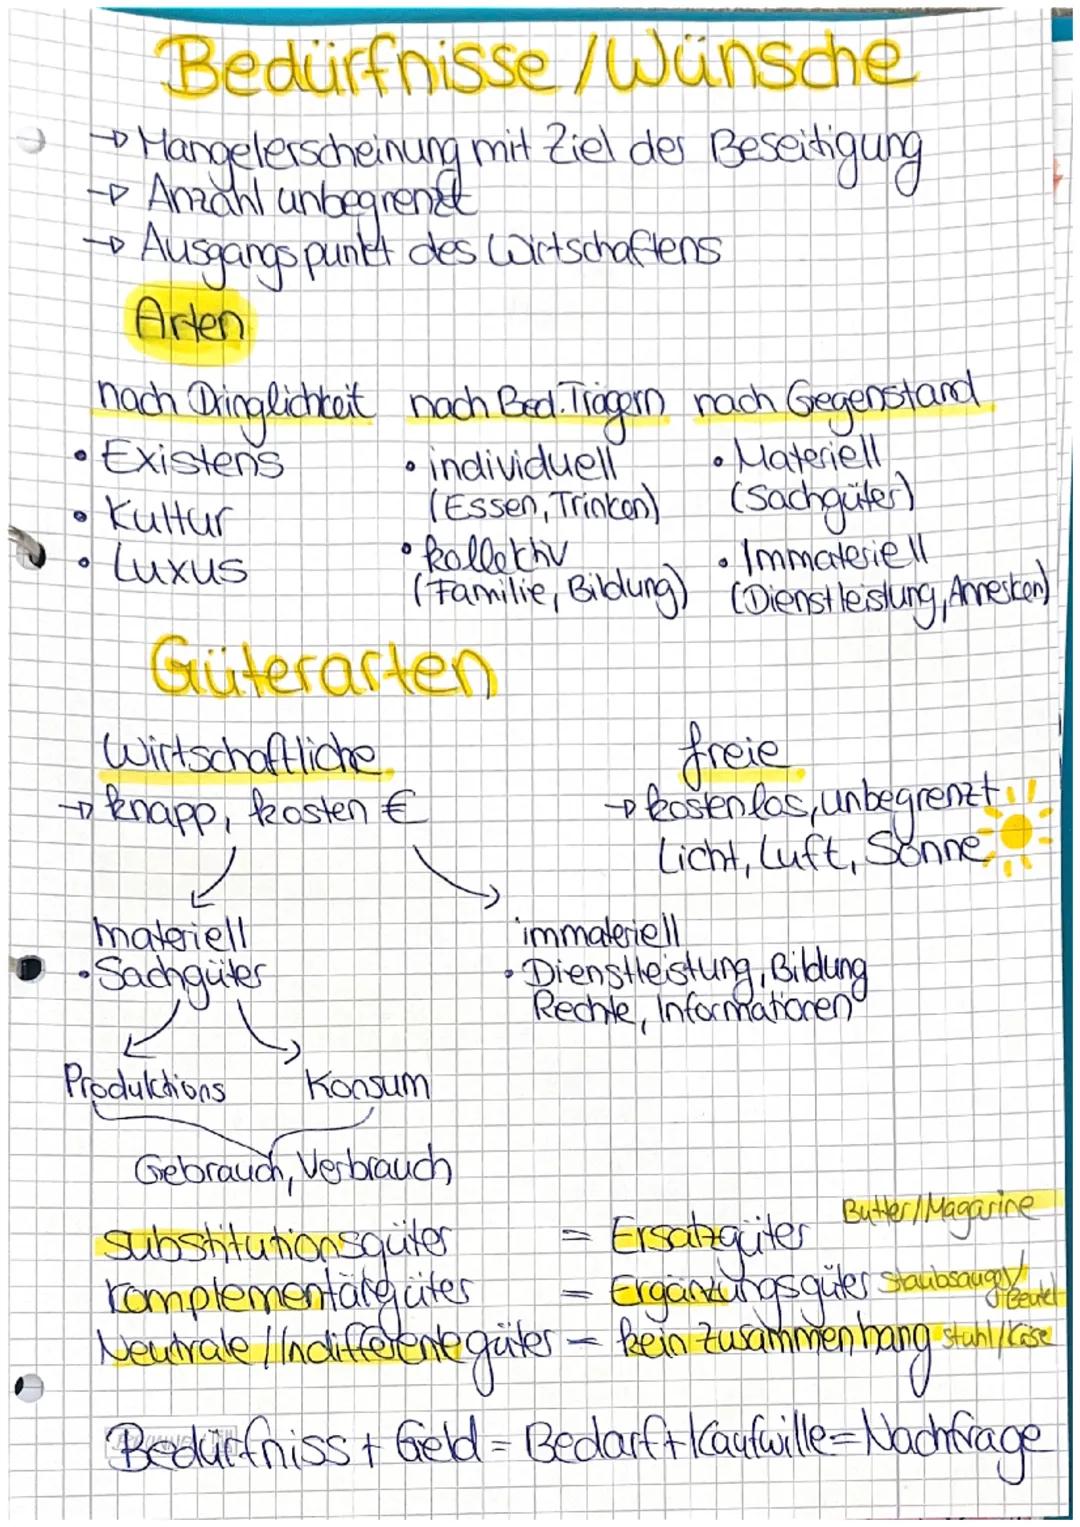 Bedürfnisse / Wünsche
→ Mangelerscheinung mit Ziel der Beseitigung
→ Anzahl unbegrenzt
→ Ausgangspunkt des Wirtschaftens
Arten
nach Dringlichkeit nach Bed. Trägern nach Gegenstand
• Existens • individuell • Materiell
(Essen, Trinken) (Sachgüter)
• Kultur
• Luxus • kollektiv • Immateriell
(Familie, Bildung) (Dienstleistung, )
Güterarten
Wirtschaftliche freie
→ knapp, kosten € → kostenlos, unbegrenzt
Licht, Luft, Sonne
materiell immateriell
• Sachgüter • Dienstleistung, Bildung
Rechte, Informationen
Produktions Konsum
Gebrauch, Verbrauch
Butter/Magarine
substitutionsgüter = Ersatzgüter
komplementärgüter = Ergänzungsgüter Staubsauger/
Beutel
Neutrale / Indifferente güter = kein Zusammenhang Stuhl/Käse
Bedürfniss + Geld = Bedarf + Kaufwille = Nachfrage